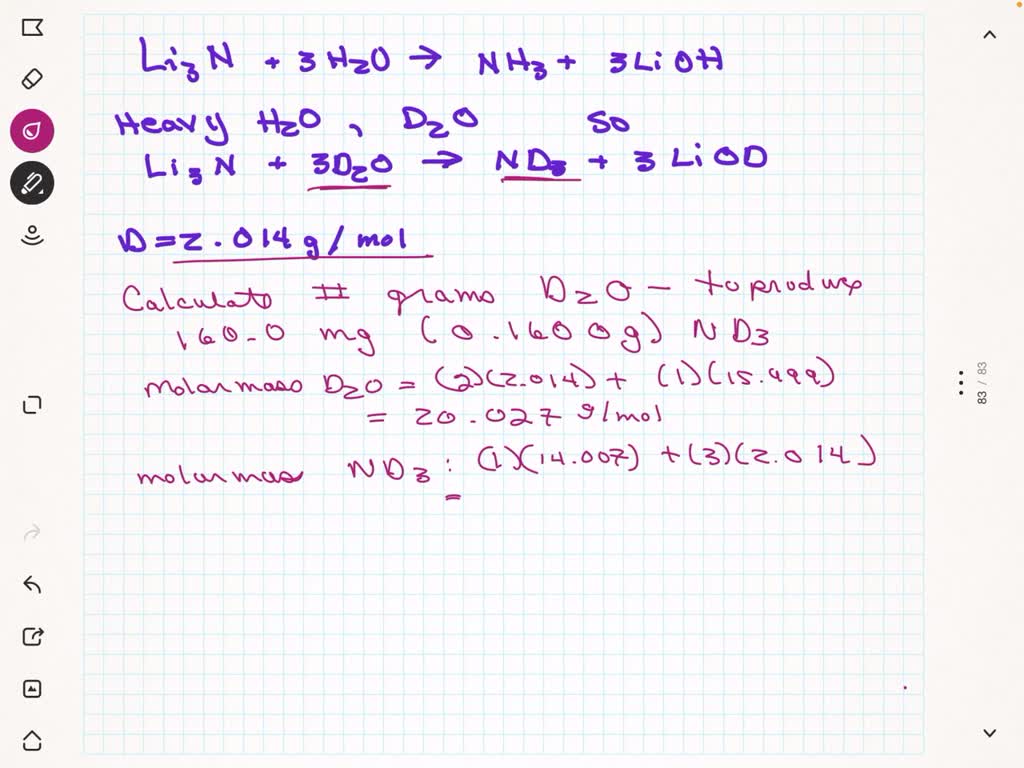 Li3N + 3H2O → NH3 + 3LiOH
Heavy H2O, D2O so
Li3N + 3D2O → ND3 + 3LiOD
D = 2.014 g/mol
Calculate # grams D2O - to produce
160.0 mg (0.1600g) ND3
molar mass D2O = (2)(2.014) + (1)(15.999)
= 20.027 g/mol
molar mass ND3: (1)(14.007) + (3)(2.014)
=
83 / 83